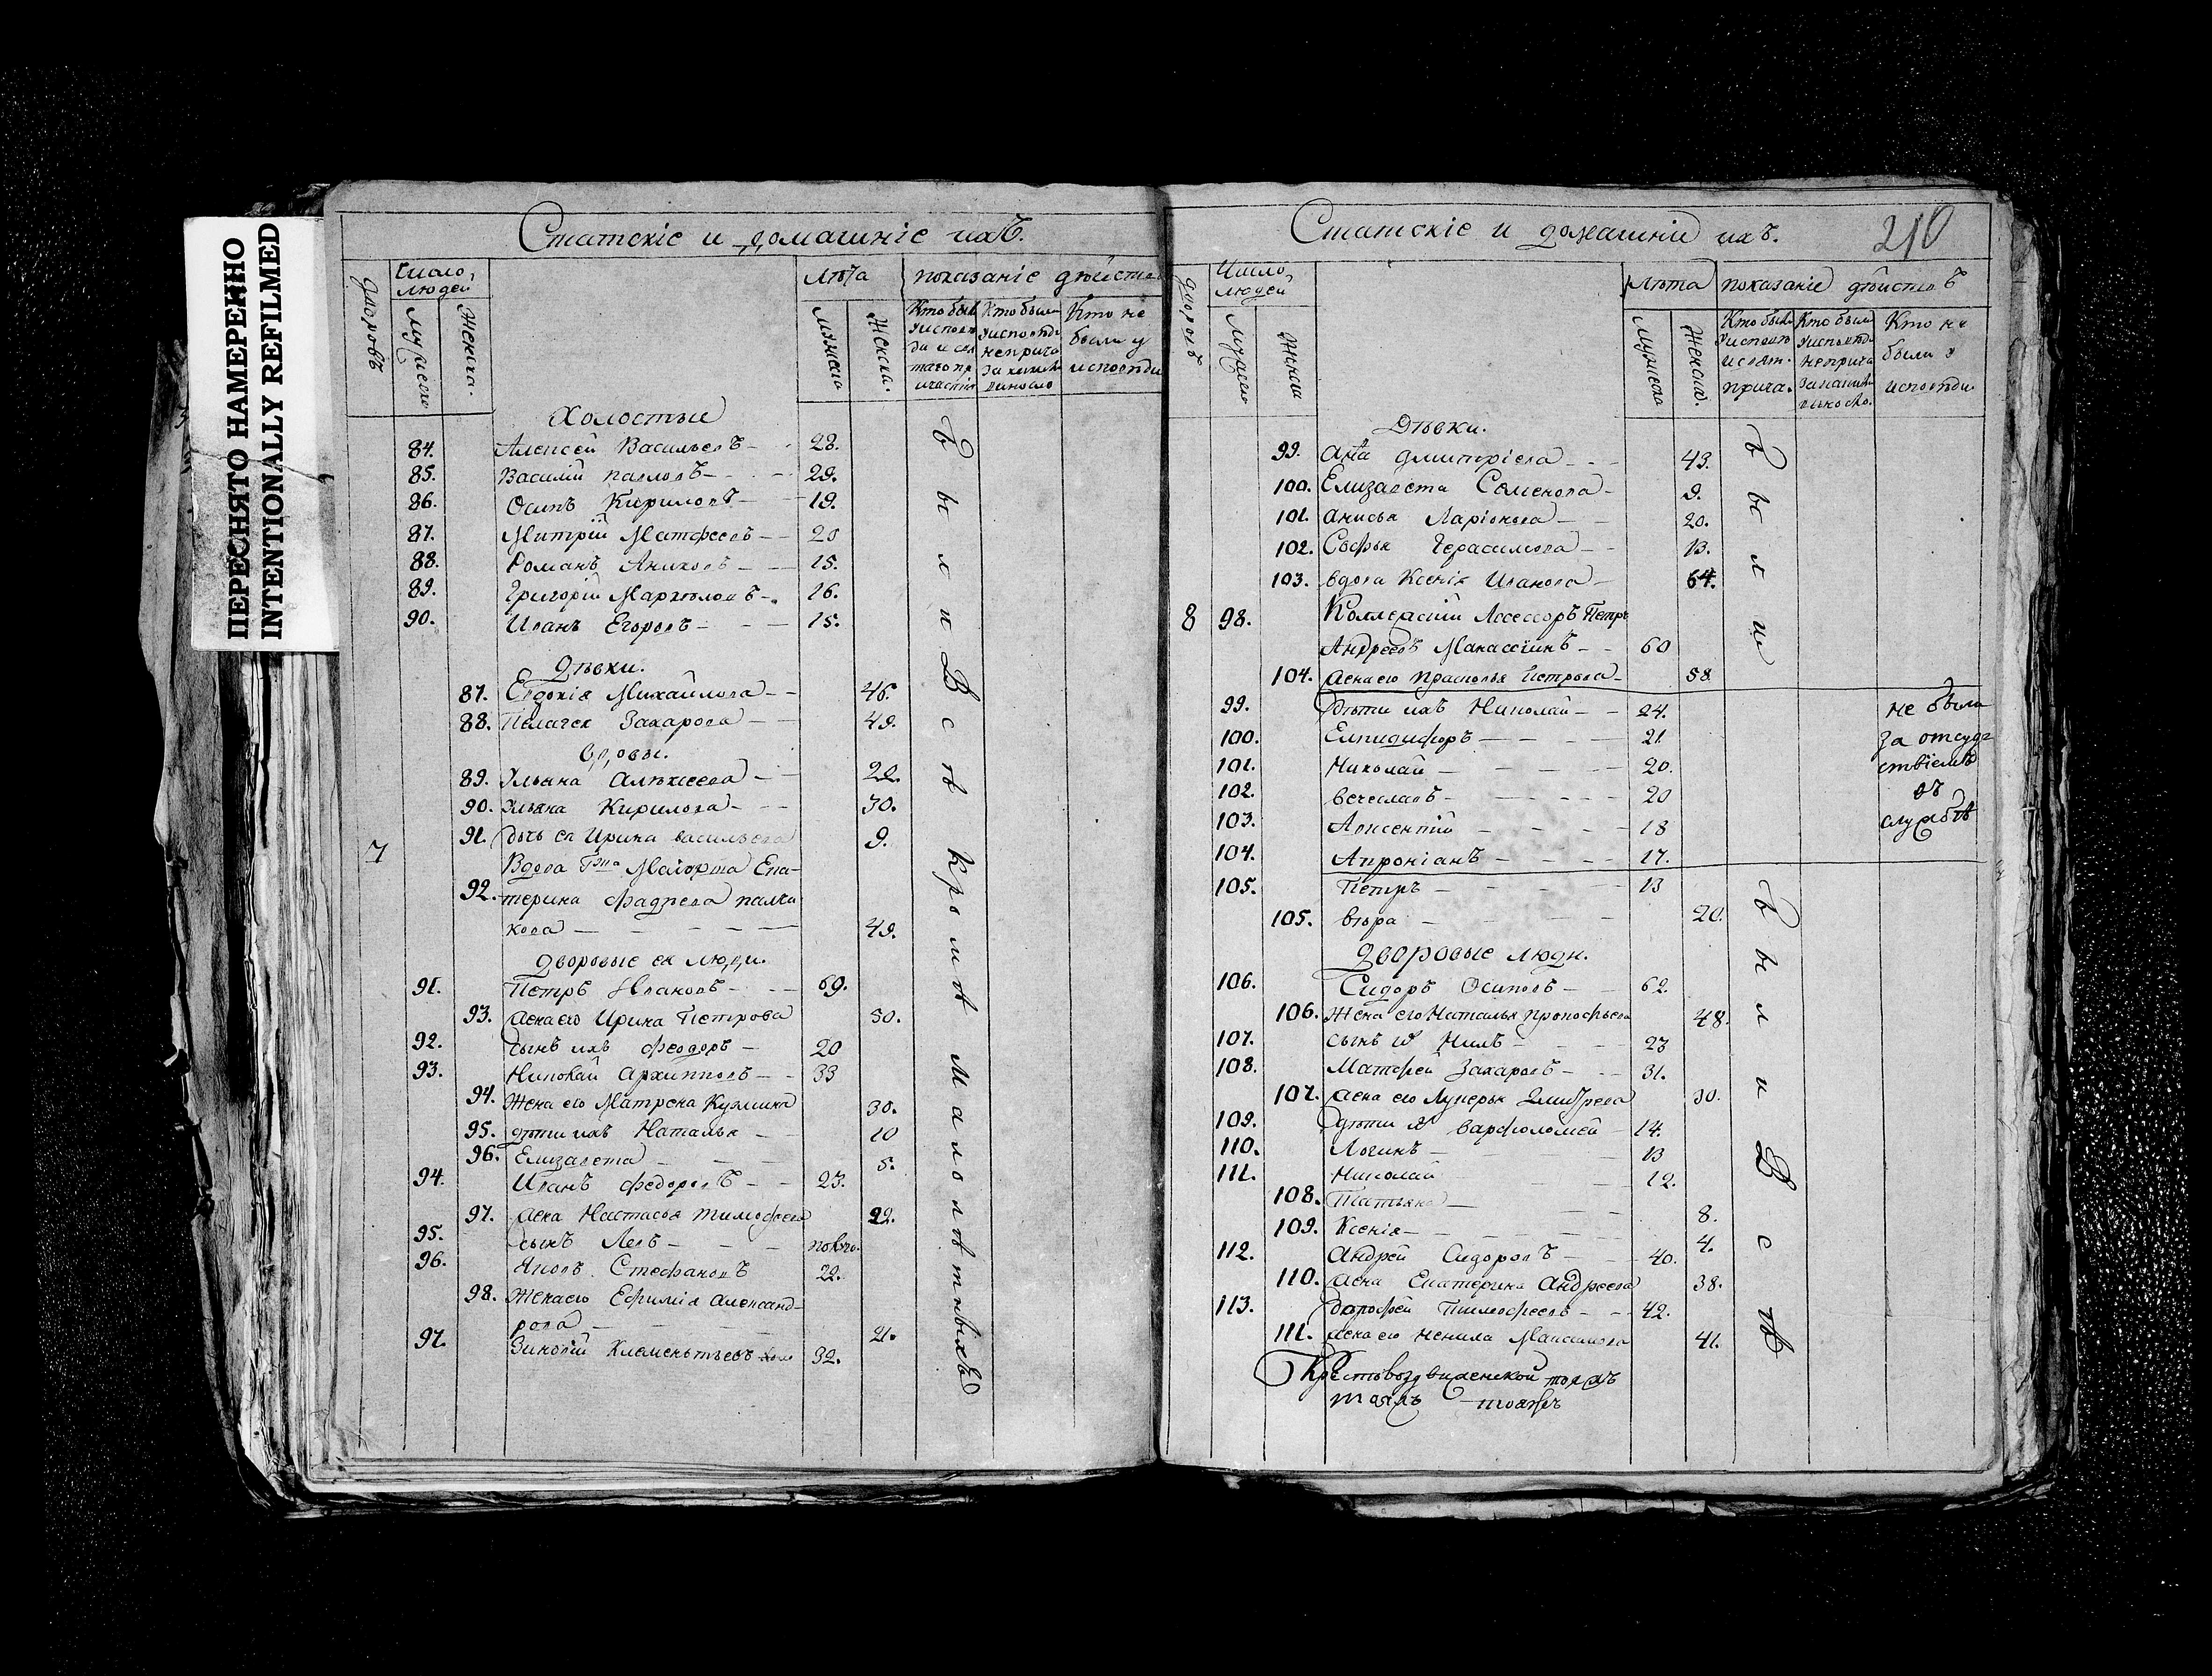 ПЕРЕСНЯТО НАМЕРЕННО
INTENTIONALLY REFILMED
Статскіе и домашніе ихъ.
дворовъ
Число людей
мужеска
женска.
Лѣта
мужеска
женска.
показаніе дѣйство
Кто был
у исповѣ
ди и свя
таго пр
ичастія
Кто были
у исповѣди
не прича
Кто не
были у
исповѣди
Холостыи
84. Алексей Васильевъ — 28.
85. Василій павловъ — 29.
86. Осипъ Кириловъ — 19.
87. Митрій Матфеевъ — 20
88. Романъ Аникеевъ — 15.
89. Григорій — 16.
90. Иванъ Егоровъ — 15.
Дѣвки.
87. Евдокія Михайлова — 46.
88. Пелагея Захарова — 49.
вдовы.
89. Ульяна Алѣксеева — 29.
90. Ульяна Кирилова — 30.
91. дочь ея Ирина васильева 9.
7 Вдова Гжа Маіорша Ека-
92. терина Фадѣева
кова — 49.
дворовые ея люди.
91. Петръ Ивановъ — 69.
93. жена его Ирина Петрова 50.
92. сынъ ихъ Феодоръ — 20
93. Николай Архиповъ — 33
94. Жена его Матрена Кузмина 30.
95. дѣти ихъ Наталья — 10
96. Елизавета — 5.
94. Иванъ Федоровъ — 23.
97. жена Настасья тимофеева 22.
95. сынъ Левъ —
96. Яковъ Стефановъ 22.
98. Жена его Ефимія александ-
рова — 21.
97. Зиновій Клеменьтьевъ 32.
Были Всѣ Кромѣ малолѣтныхъ
Статскіе и домашніе ихъ.
210
дворовъ
Число людей
мужеска
женска
Лѣта
мужеска
женска.
показаніе дѣйствъ
Кто были
у исповѣ
и свят.
прича.
Кто были
у исповѣди
не прича
Кто не
были у
исповѣди
Дѣвки.
99. Анна дмитріева — 43.
100. Елизавета Семенова — 9.
101. анисья Ларіонова — 20.
102. Софья Герасимова — 13.
103. вдова Ксенія Иванова — 64.
8 98. Коллежскій Ассессоръ Петръ
Андреевъ Манассеинъ — 60
104. жена его Прасковья Петрова — 58
99. дѣти ихъ Николай — 24.
100. Елпидифоръ — 21
101. Николай — 20.
102. вечеславъ — 20
103. Авксентій — 18
104. Апроніанъ — 17.
не были
за отсуд
ствіемъ
въ
службѣ
105. Петръ — 13
105. вѣра — 20.
Дворовые люди.
106. Сидоръ Осиповъ — 62.
106. Жена его Наталья прокофьева 48.
107. сынъ их Нилъ — 23
108. Матфей Захаровъ — 31.
107. жена его Лукерья Дмитрева 30.
109. дѣти их варфоломей — 14.
110. Логинъ — 13
111. Николай — 12.
108. Татьяна — 8.
109. Ксенія — 4.
112. Андрей Сидоровъ — 40.
110. жена Екатерина Андреева 38.
113. дорофей Тимофеевъ — 42.
111. жена его Ненила Максимова 41.
Были
Были Всѣ
Крестовоздвиженской